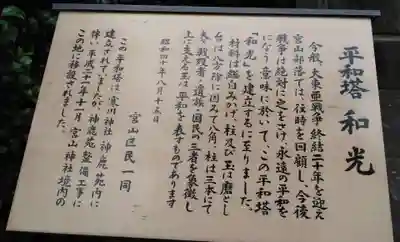 平和塔 和光
今般、大東亜戦争終結二十年を迎え
宮山部落では、往時を回顧し、今後
戦争は絶対に之をさけ、永遠の平和を
になう意味に於いて、この平和塔
「和光」を建立するに至りました。
材料は総白みかげ、柱及び玉は磨とし
台は八方除に因みて八角、柱は三本にて
夫々戦歿者、遺族、国民の三者を象徴し
上に支える玉は平和を表すものであります
昭和四十年八月十五日
宮山区民一同
この平和塔は寒川神社神鹿苑内に
建立されていましたが、神鹿苑整備工事に
伴い平成二十年十一月宮山神社境内の
この地に移設されました。